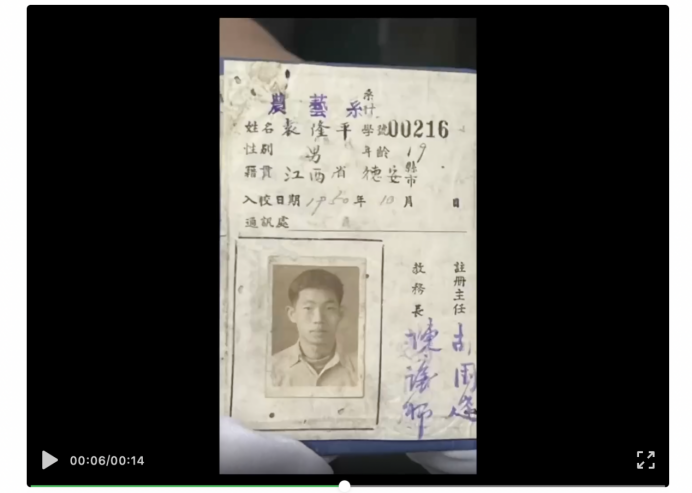 農藝系
系
科
姓名 袁隆平 學號 00216
性別 男 年齡 19
籍貫 江西省 德安 縣
市
入校日期 1950年 10月 日
通訊處
註冊主任
教務長
00:06/00:14